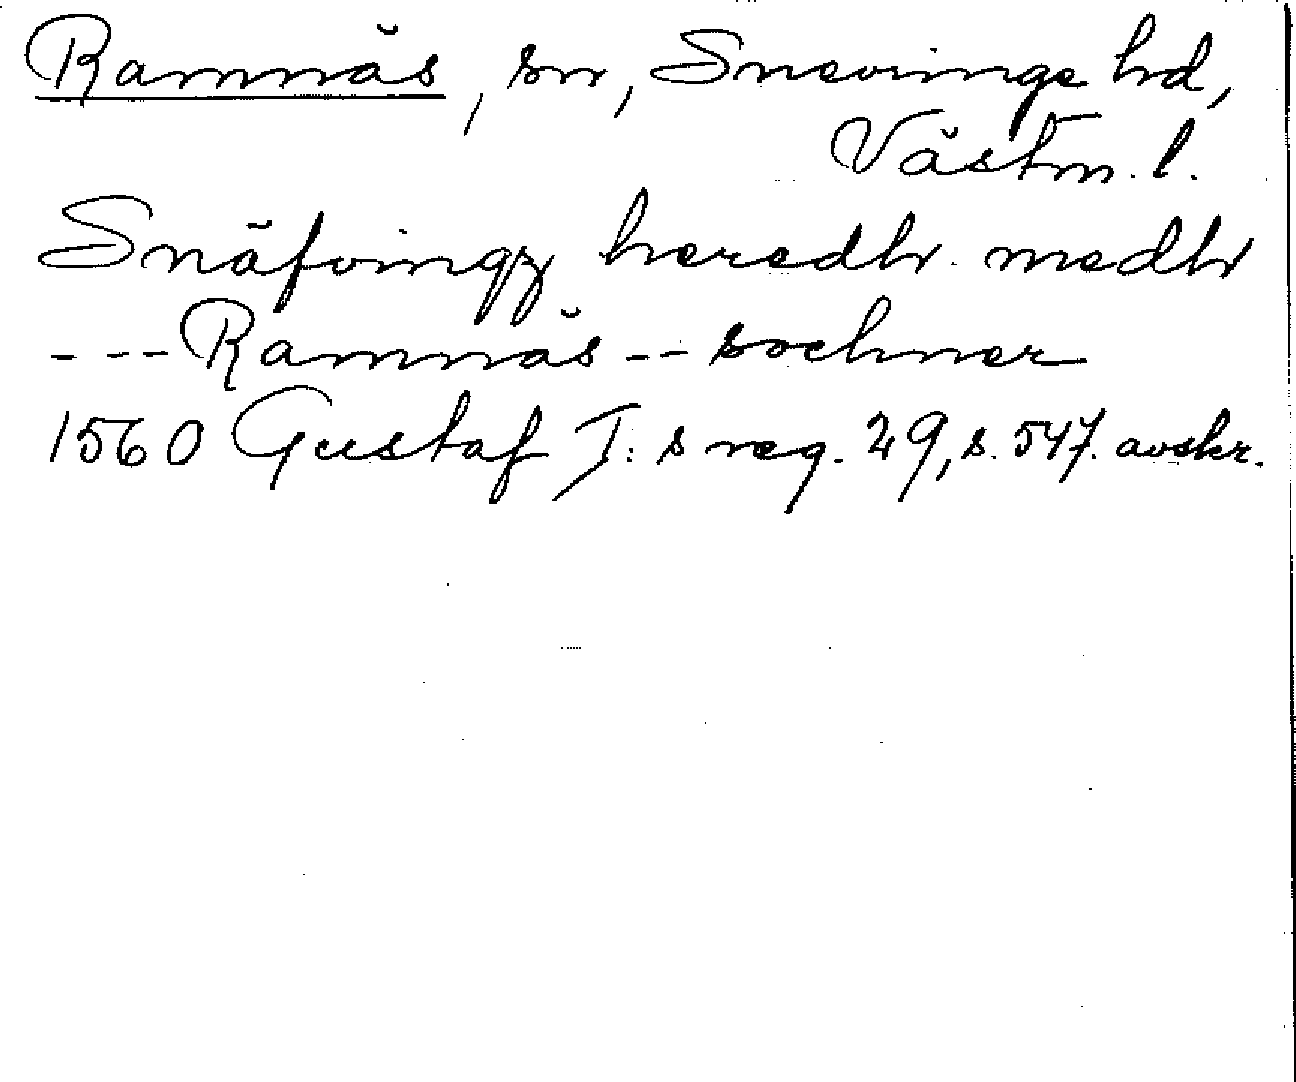 Ramnäs, sn, Snevringe hd,
Västm. l.
Snäfvingz heredh medh
--- Ramnäs -- sochner
1560 Gustaf I:s reg. 29, s. 547. avskr.